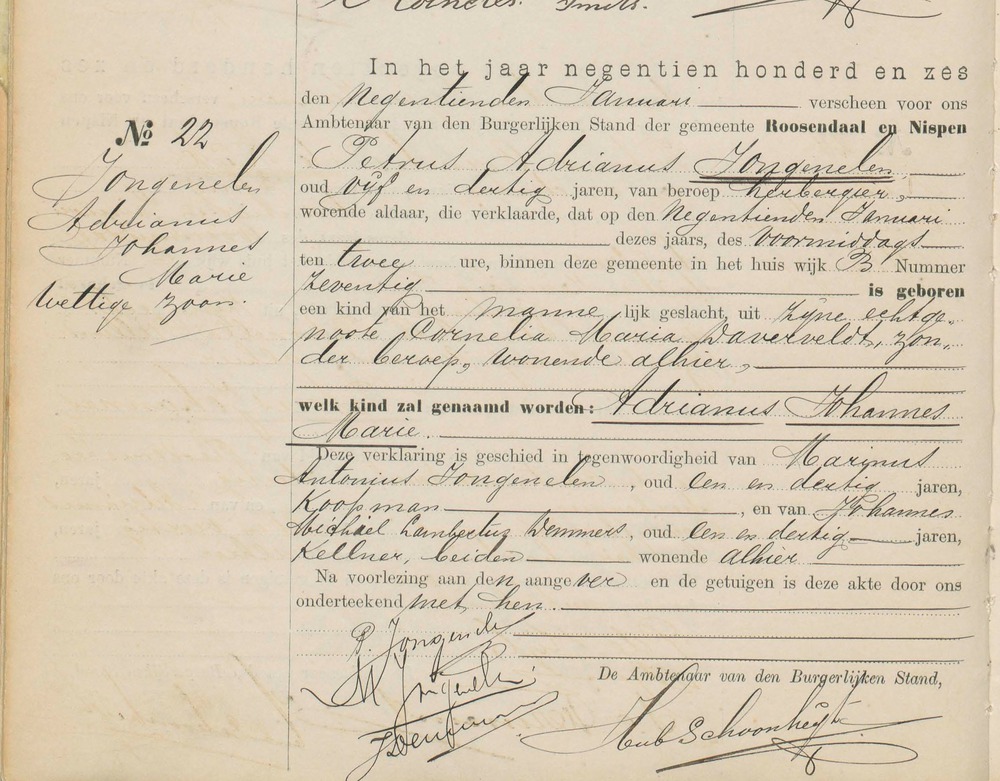 Cornelis. Smits.
In het jaar negentien honderd en zes
den Negentienden Januari verscheen voor ons
Ambtenaar van den Burgerlijken Stand der gemeente Roosendaal en Nispen
Petrus Adrianus Jongenelen,
oud vijf en dertig jaren, van beroep herbergier,
wonende aldaar, die verklaarde, dat op den Negentienden Januari
dezes jaars, des Voormiddags
ten twee ure, binnen deze gemeente in het huis wijk B Nummer
zeventig is geboren
een kind van het manne lijk geslacht, uit zijne echtge-
noote Cornelia Maria Daverveldt, zon-
der beroep, wonende alhier,
welk kind zal genaamd worden: Adrianus Johannes
Marie.
Deze verklaring is geschied in tegenwoordigheid van Marinus
Antonius Jongenelen, oud een en dertig jaren,
Koopman, en van Johannes
Michael Lambertus Demmers, oud een en dertig jaren,
Kellner, beiden wonende alhier
Na voorlezing aan den aangever en de getuigen is deze akte door ons
onderteekend met hen.
P. Jongenelen
M Jongenelen
De Ambtenaar van den Burgerlijken Stand,
Hub Schoonheyt
No 22
Jongenelen
Adrianus
Johannes
Marie
Wettige zoon.